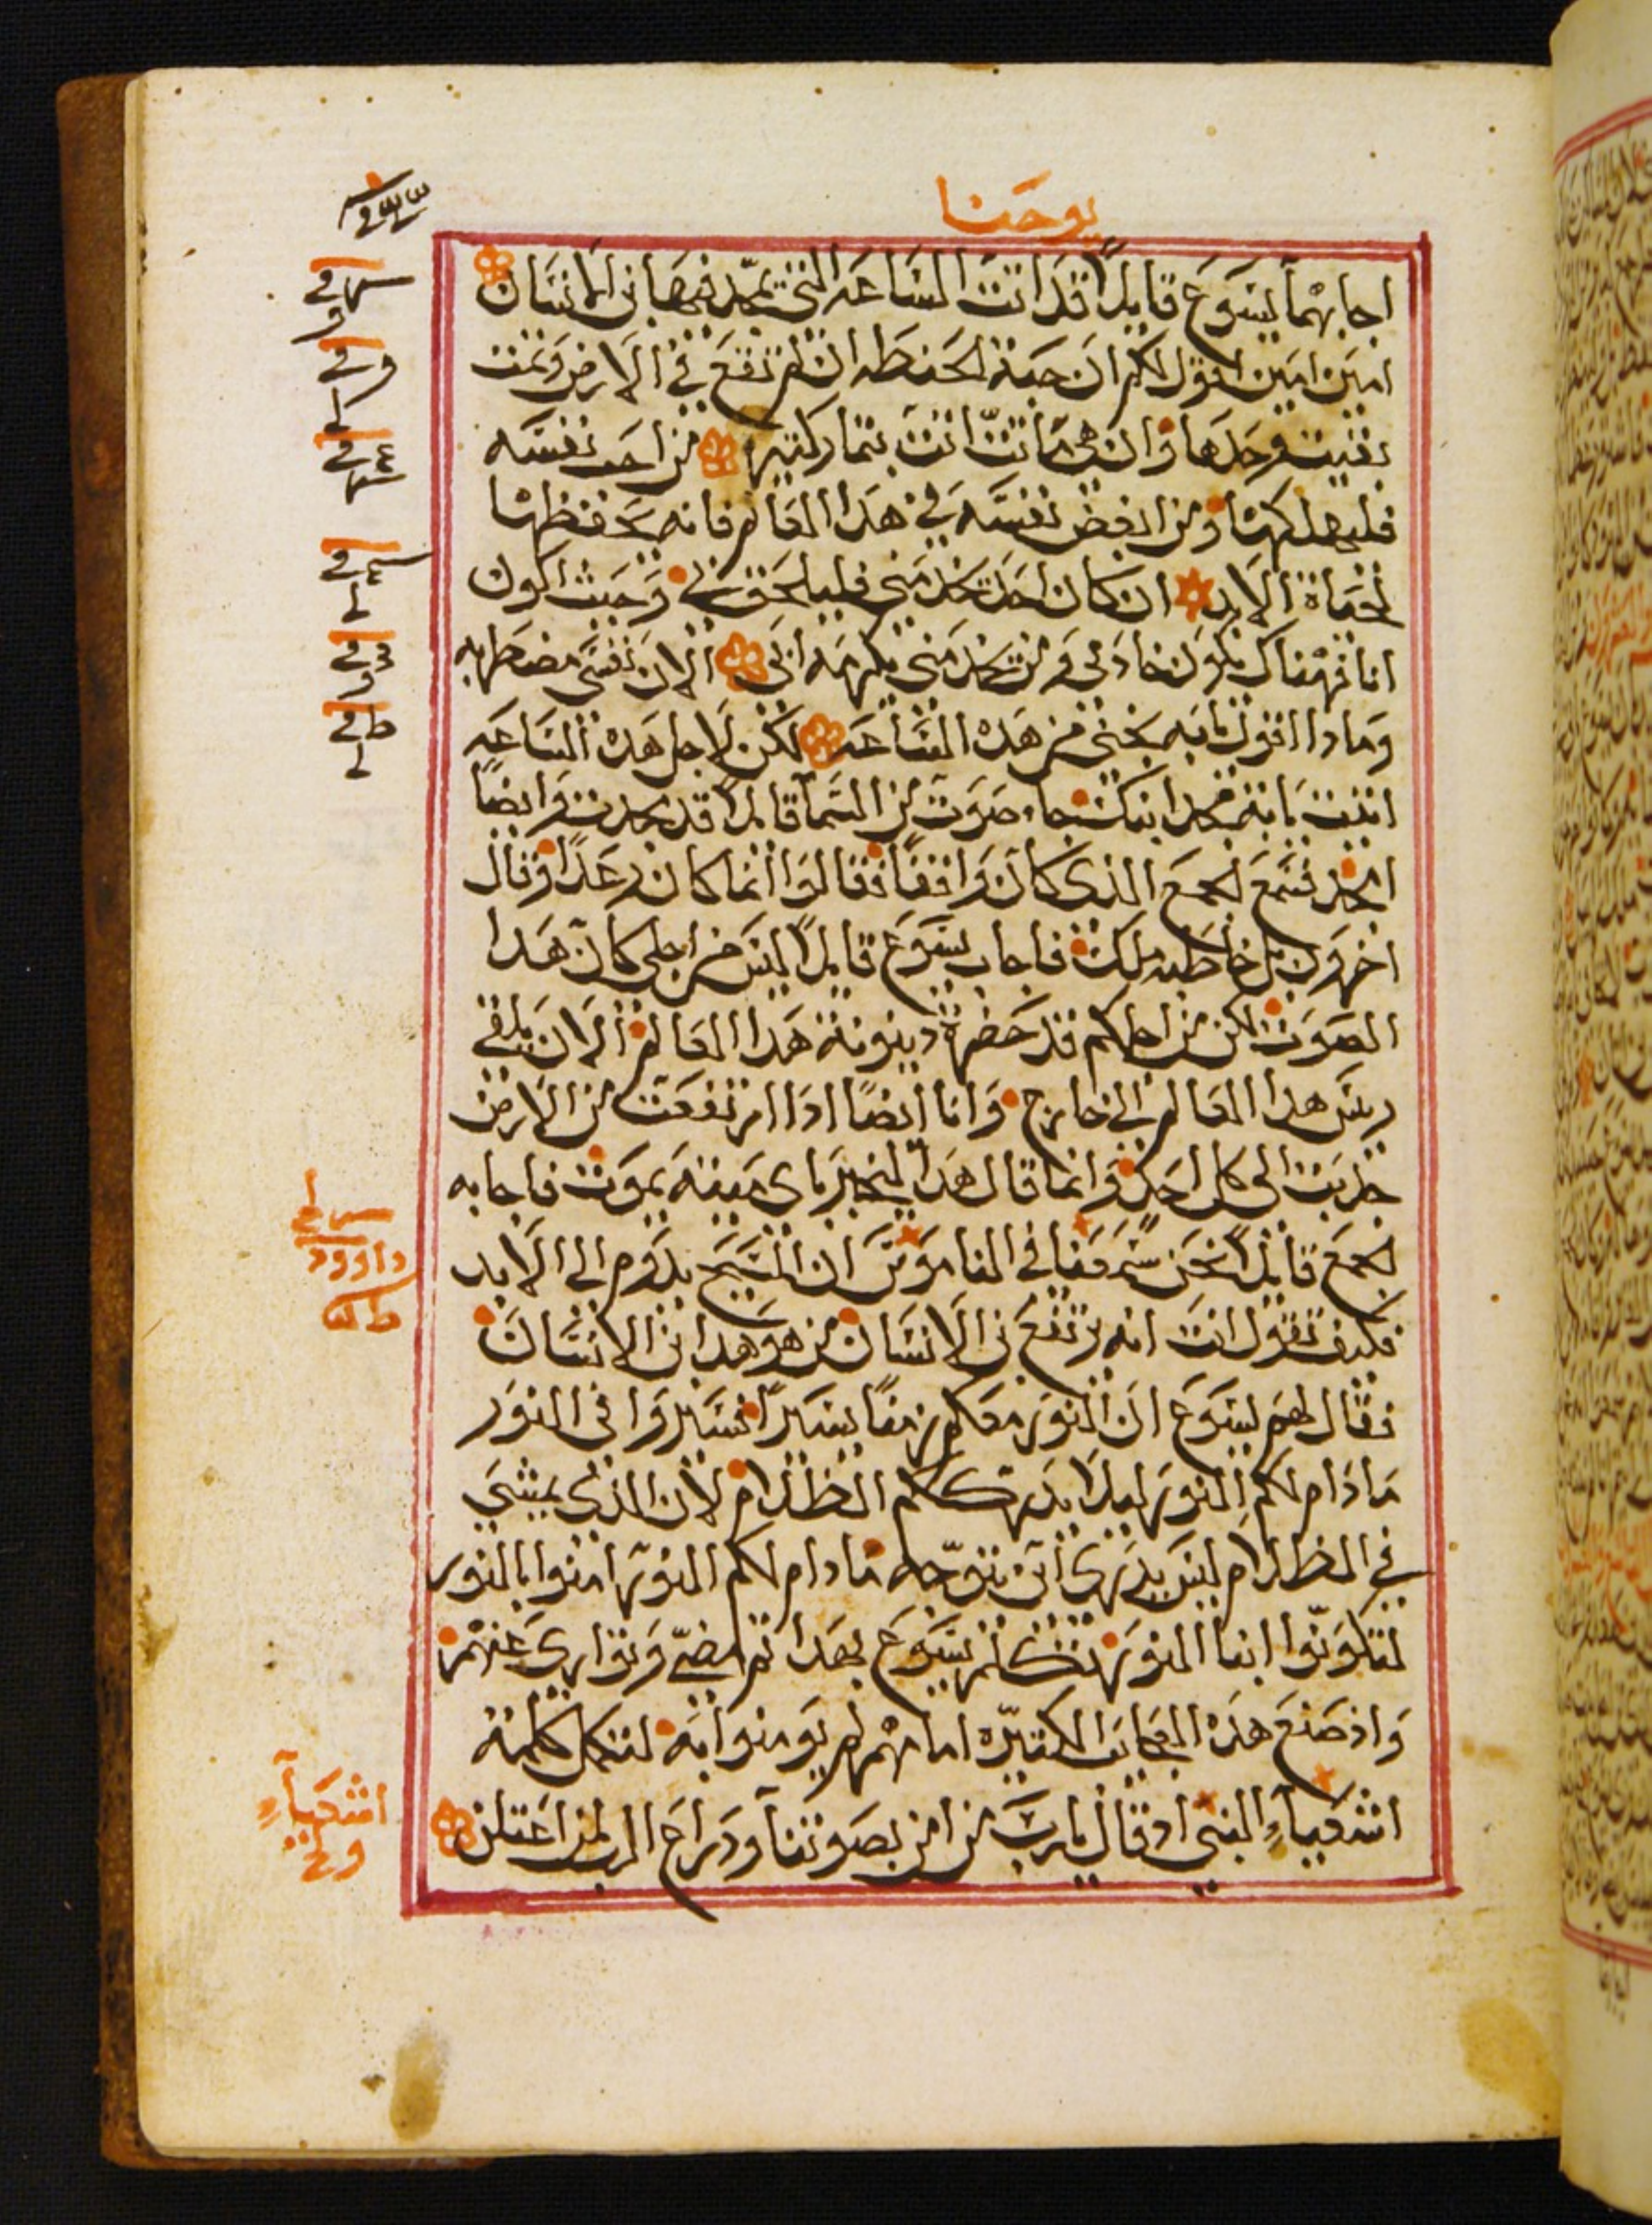 يوحنا
اجابهما يسوع قايلاً قد اتت الساعه التي يتمجد فيها ابن الانسان
امين امين اقول لكم ان حبة الحنطه ان لم تقع في الارض وتمت
بقيت وحدها وان هي ماتت اتت بثمار كثيره من احب نفسه
فليهلكها ومن ابغض نفسه في هذا العالم فانه يحفظها
لحياة الابد ان كان احد يخدمني فليلحق بي وحيث اكون
انا فهناك يكون خادمي ومن يخدمني يكرمه ابي الان نفسي مضطربه
وماذا اقول يا ابه نجني من هذه الساعه لكن لاجل هذه الساعه
اتيت يا ابة مجد ابنك جاء صوت من السما قايلاً قد مجدت وايضاً
امجد فسمع الجمع الذي كان واقفاً فقالوا انما كان رعداً وقال
اخرون بل خاطبه ملك فاجاب يسوع قايلاً ليس من اجلي كان هذا
الصوت لكن من اجلكم قد حضرة دينونة هذا العالم الان يلقى
ريس هذا العالم الى خارج وانا ايضاً اذا ارتفعت من الارض
جذبت الى كل احد وانما قال هذا ليخبر باى ميته يموت فاجابه
الجمع قايلاً نحن سمعنا في الناموس ان المسيح يدوم الى الابد
فكيف تقول انت انه يرتفع ابن الانسان من هو هذا ابن الانسان
فقال لهم يسوع ان النور معكم زمناً يسيراً فسيروا في النور
ما دام لكم النور ليلا يدرككم الظلام لان الذي يمشي
في الظلام ليس يدري اين يتوجه ما دام لكم النور امنوا بالنور
لتكونوا ابنا النور تكلم يسوع بهذا ثم مضى وتوارى عنهم
واذ صنع هذه العجايب الكتيره امامهم لم يومنوا به لتكمل كلمة
اشعياء النبي اذ قال يا رب من امن بصوتنا ودراع الرب لمن اعتلن
داوود
اشعياء